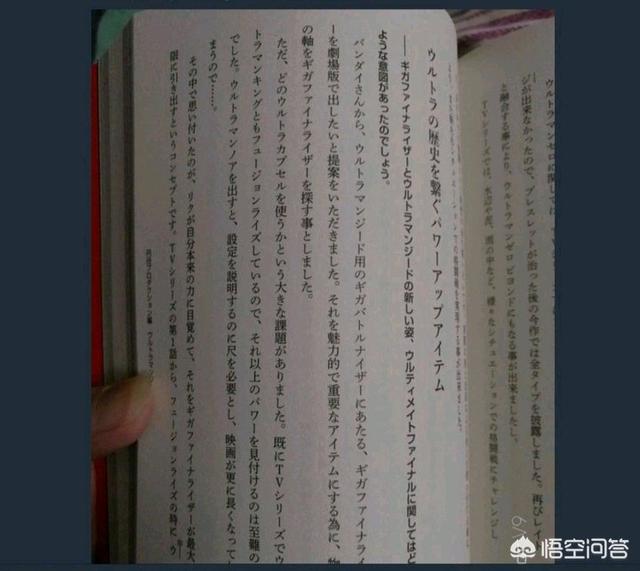 ウルトラマンゼロに関しては
ジが出来なかったので、ブレスレットが治った後の今作では全タイプを披露しました。再びレイ
と融合する事により、ウルトラマンゼロ ビヨンドにもなる事が出来ました。
TVシリーズでは、水辺や泥、雨の中など、様々なシチュエーションでの格闘戦にチャレンジし
ウルトラの歴史を繋ぐパワーアップアイテム
――ギガファイナライザーとウルトラマンジードの新しい姿、ウルティメイトファイナルに関してはど
ような意図があったのでしょう。
バンダイさんから、ウルトラマンジード用のギガバトルナイザーにあたる、ギガファイナライ
ーを劇場版で出したいと提案をいただきました。それを魅力的で重要なアイテムにする為に、物
の軸をギガファイナライザーを探す事としました。
ただ、どのウルトラカプセルを使うかという大きな課題がありました。既にTVシリーズでウ
トラマンキングともフュージョンライズしているので、それ以上のパワーを見付けるのは至難の
でした。ウルトラマンノアを出すと、設定を説明するのに尺を必要とし、映画が更に長くなって
まうので……。
その中で思い付いたのが、リクが自分本来の力に目覚めて、それをギガファイナライザーが最大
限に引き出すというコンセプトです。TVシリーズの第1話から、フュージョンライズの時にウ
円谷プロダクション編 ウルトラマンジ
悟空问答